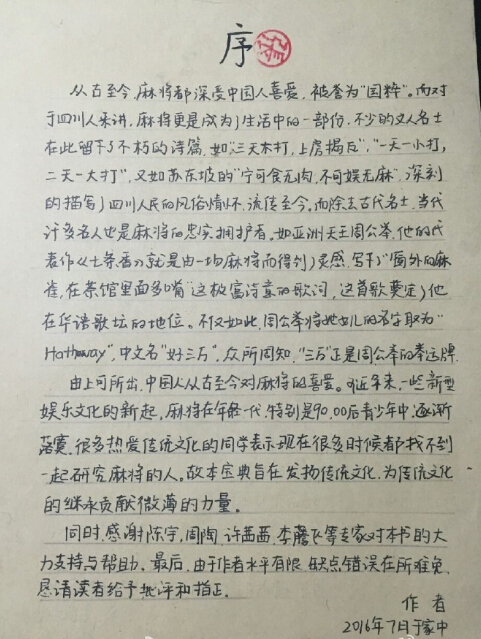 序
从古至今,麻将都深受中国人喜爱,被誉为"国粹"。而对
于四川人来讲,麻将更是成为了生活中的一部份,不少的文人名士
在此留下了不朽的诗篇,如"三天不打,上房揭瓦","一天一小打,
二天一大打",又如苏东坡的"宁可食无肉,不可娱无麻",深刻
的描写了四川人民的风俗情怀,流传至今。而除去古代名士,当代
许多名人也是麻将的忠实拥护者。如亚洲天王周公举,他的代
表作《七茶香》就是由一场麻将而得到了灵感,写下了"窗外的麻
雀,在茶馆里面多嘴"这极富诗意的歌词,这首歌奠定了他
在华语歌坛的地位。不仅如此,周公举将她女儿的名字取为"
Hathaway",中文名"好三万",众所周知,"三万"正是周公举的幸运牌.
由上可所出,中国人从古至今对麻将的喜爱。可近年来,一些新型
娱乐文化的新起,麻将在年轻一代,特别是90.00后青少年中,逐渐
落寞,很多热爱传统文化的同学表示现在很多时候都找不到
一起研究麻将的人。故本宝典旨在发扬传统文化,为传统文化
的继承贡献微薄的力量。
同时,感谢陈宇,周陶,许茜茜,李腾飞等专家对本书的大
力支持与帮助。最后,由于作者水平有限,缺点错误在所难免,
恳请读者给予批评和指正.
作者
2016年7日于家中